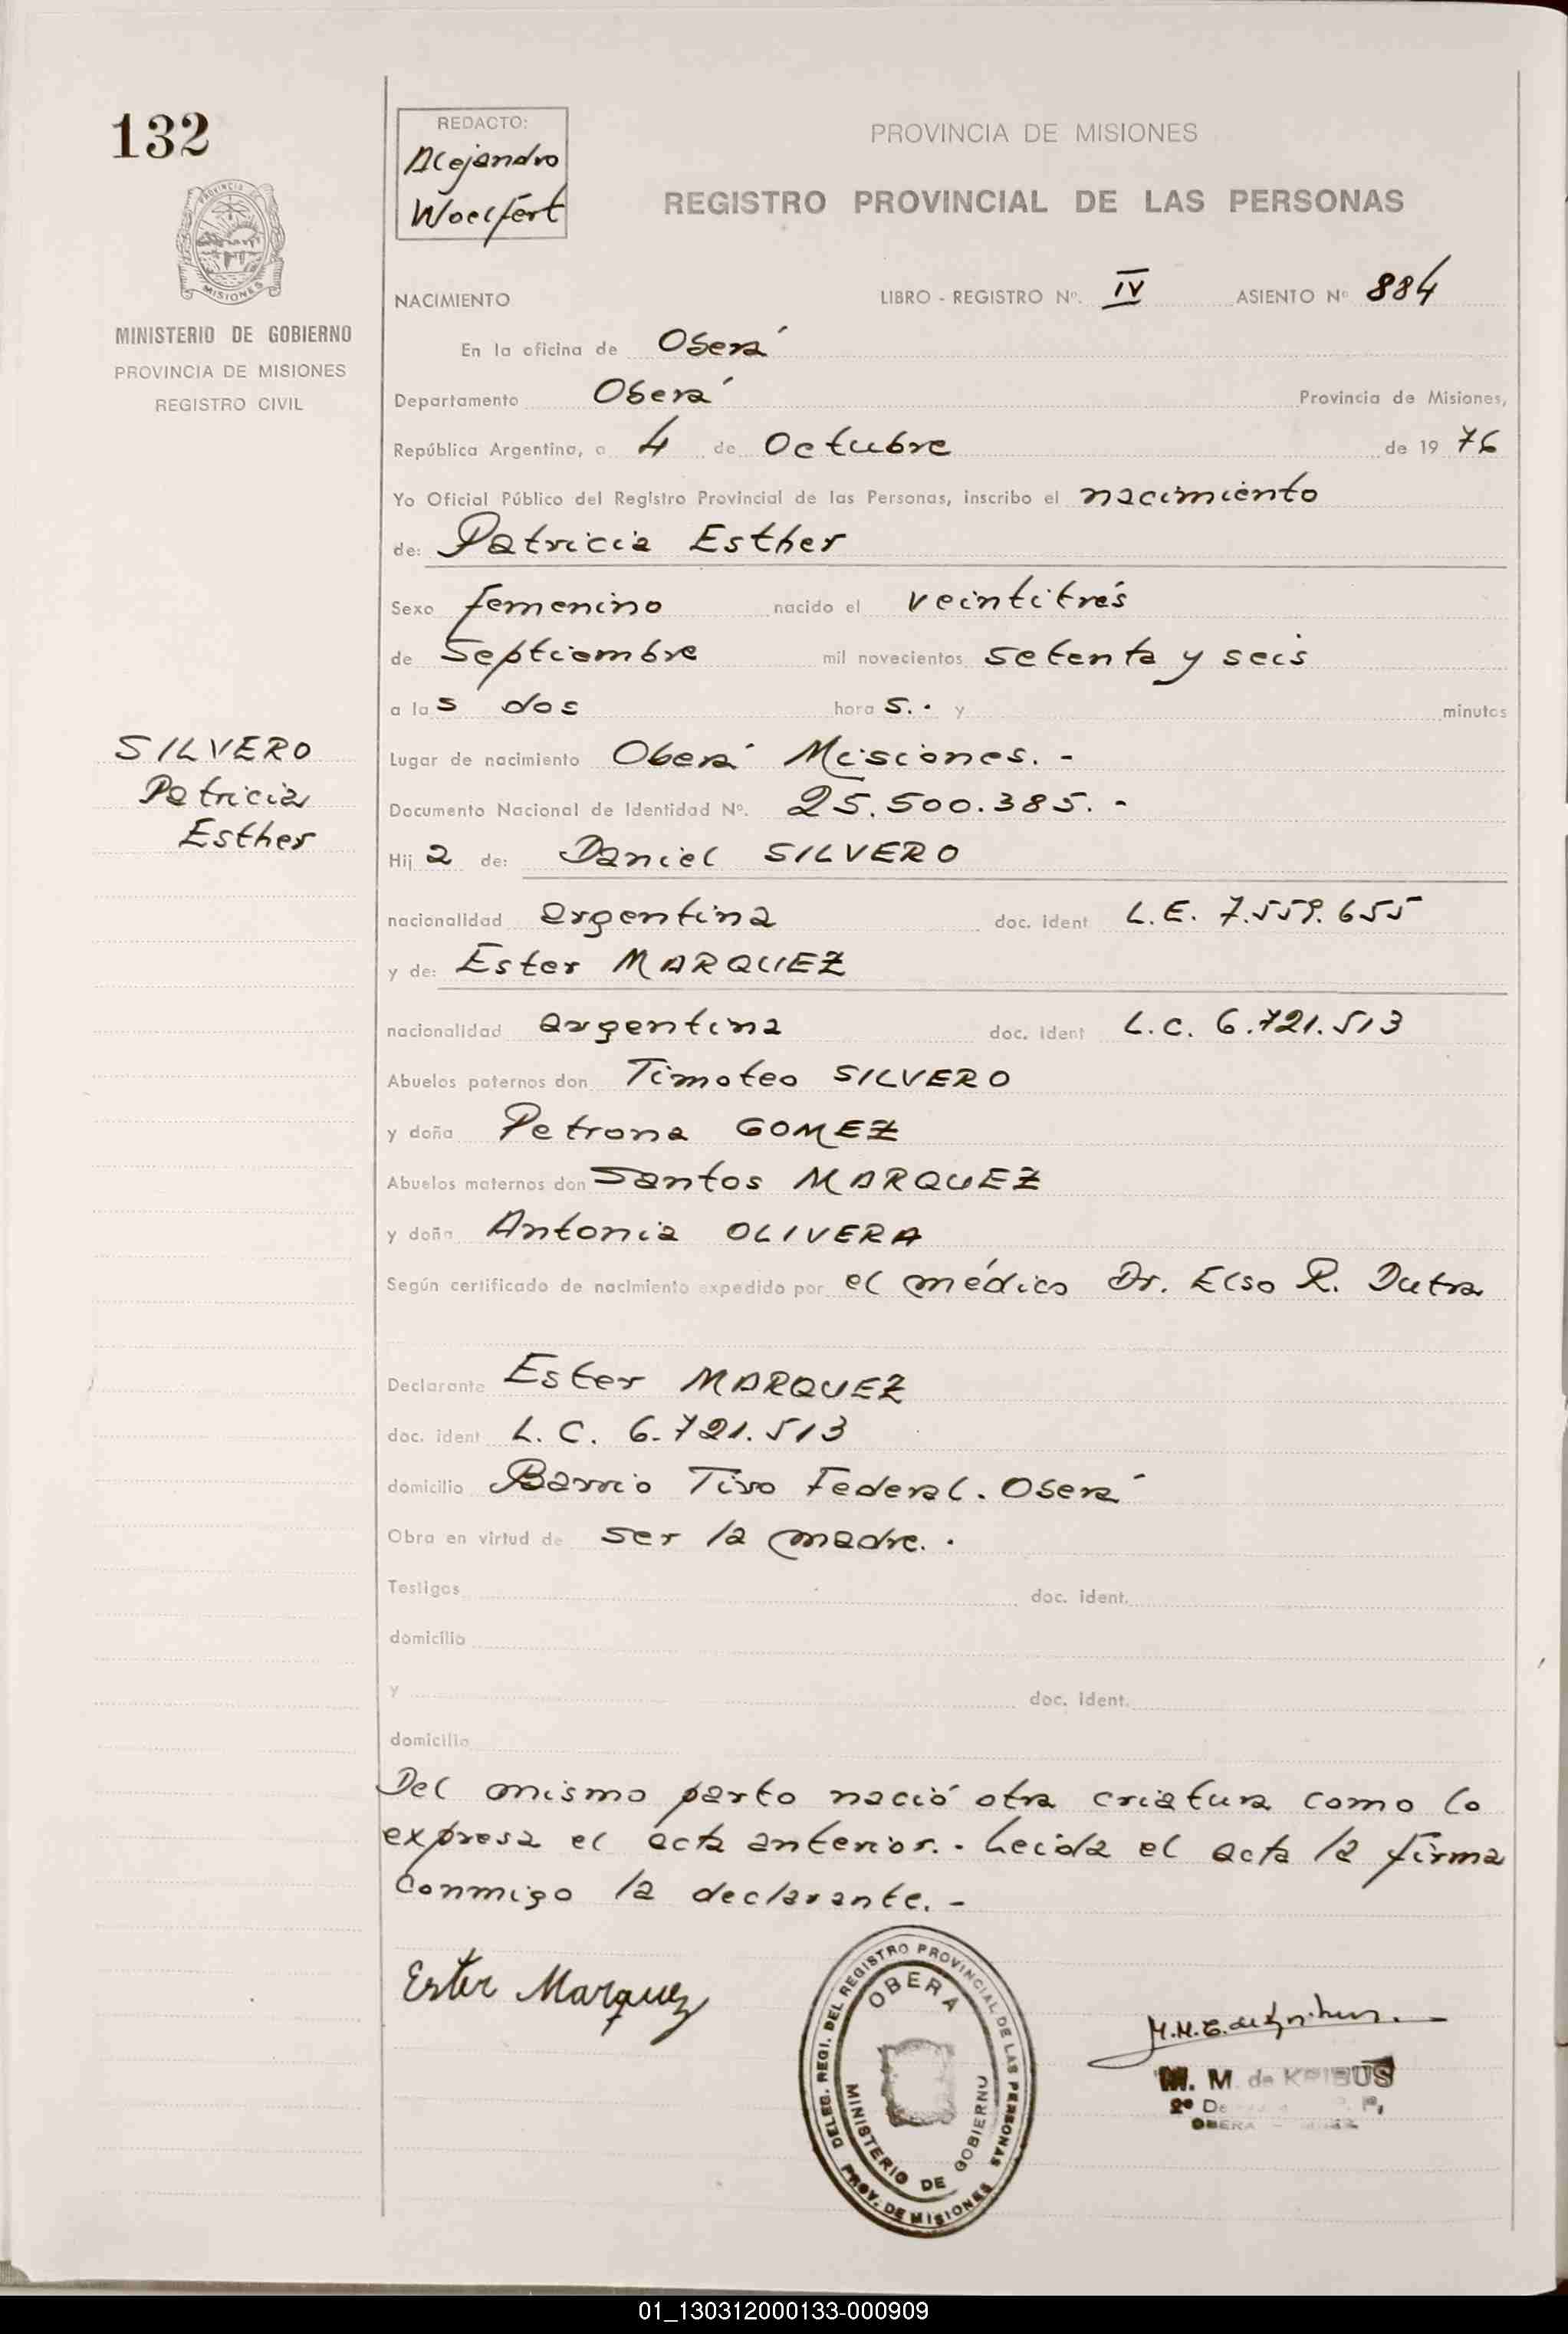 132
REDACTO:
Alejandro
Woelfert
PROVINCIA DE MISIONES
REGISTRO PROVINCIAL DE LAS PERSONAS
PROVINCIA DE
MISIONES
MINISTERIO DE GOBIERNO
PROVINCIA DE MISIONES
REGISTRO CIVIL
NACIMIENTO LIBRO - REGISTRO Nº. IV ASIENTO Nº 884
En la oficina de Oberá
Departamento Oberá Provincia de Misiones,
República Argentina, a 4 de Octubre de 1976
Yo Oficial Público del Registro Provincial de las Personas, inscribo el nacimiento
de: Patricia Esther
Sexo femenino nacido el veintitrés
de Septiembre mil novecientos setenta y seis
a las dos horas.. y minutos
SILVERO
Patricia
Esther
Lugar de nacimiento Oberá Misiones. -
Documento Nacional de Identidad Nº. 25.500.385. -
Hija de: Daniel SILVERO
nacionalidad argentina doc. ident L.E. 7.559.655
y de: Ester MARQUEZ
nacionalidad argentina doc. ident L.C. 6.721.513
Abuelos paternos don Timoteo SILVERO
y doña Petrona GOMEZ
Abuelos maternos don Santos MARQUEZ
y doña Antonia OLIVERA
Según certificado de nacimiento expedido por el médico Dr. Elso R. Dutra
Declarante Ester MARQUEZ
doc. ident L. C. 6.721.513
domicilio Barrio Tiro Federal. Oberá
Obra en virtud de ser la madre. .
Testigos doc. ident.
domicilio
y doc. ident.
domicilio
Del mismo parto nació otra criatura como lo
expresa el acta anterior. - Leida el acta la firma
conmigo la declarante. -
Ester Marquez
DELEG. REGI. DEL REGISTRO PROVINCIAL DE LAS PERSONAS
OBERA
MINISTERIO DE GOBIERNO
PROV. DE MISIONES
M. M. de KRIBUS
2º De
OBERA
01_130312000133-000909